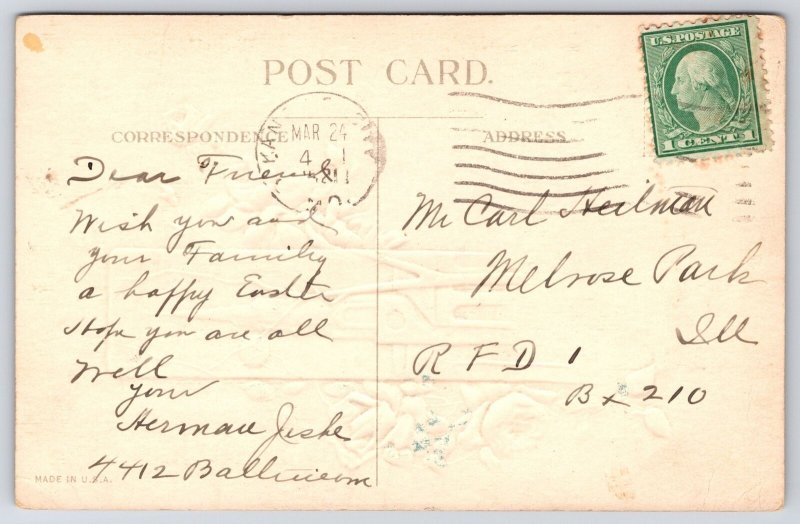 POST CARD.
CORRESPONDENCE
ADDRESS
MAR 24
4
U.S. POSTAGE
1 CENT 1
Dear Friend
Wish you and
your Family
a happy Easter
Hope you are all
Well
your
Herman
4412
Mr Carl Heilman
Melrose Park
Ill
R F D 1
Bx 210
MADE IN U.S.A.